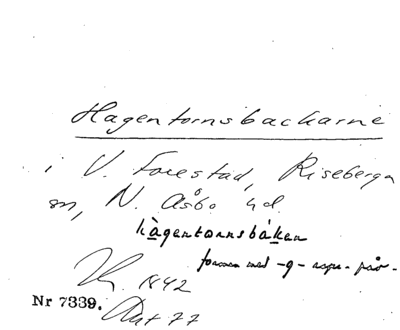 Hagentornsbackarne
i V. Forestad, Riseberga
sn, N. Åsbo hd.
hàgentornsbákan
formen med -g- uppr. påv.
1842
Nr 7339. Akt 77